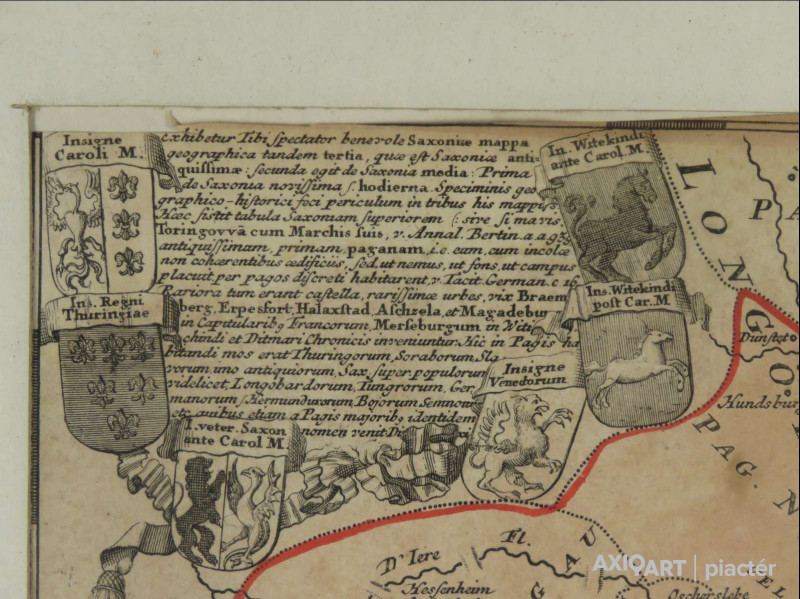 Insigne
Caroli M.
Exhibetur Tibi spectator benevole Saxoniæ mappa
geographica tandem tertia, quæ est Saxoniæ anti-
quissimæ: secunda egit de Saxonia media: Prima
de Saxonia novissima s. hodierna. Speciminis geo
graphico-historici feci periculum in tribus his mappis
Hæc sistit tabula Saxoniam superiorem (: sive si mavis,
Toringovvâ cum Marchis suis, v. Annal. Bertin. a.
antiquissimam, primam, paganam, i.e. eam, cum incolæ
non cohærentibus ædificiis, sed, ut nemus, ut fons, ut campus
placuit, per pagos discreti habitarent, v. Tacit. German. c 16
Rariora tum erant castella, rarissimæ urbes, vix Braem
berg, Erpesfort, Halaxstad, Aschzela, et Magadebur
in Capitularibg Francorum, Merseburgum in Witi
chindi et Ditmari Chronicis inveniuntur. Hic in Pagis ha
bitandi mos erat Thuringorum, Soraborum, Sla
vorum imo antiquiorum, Sax. super. populorum
videlicet, Longobardorum, Tungrorum, Ger
manorum, Hermundurorum, Bojorum Semnon
etc. quibus etiam a Pagis majoribg identidem
nomen venit.
In. Witekindi
ante Carol. M.
Ins. Regni
Thuringiae
Ins. Witekindi
post Car. M
Insigne
Venedorum
I. veter. Saxon
ante Carol M
LONG
O
PA
Dunstet
Hundsbur
PAG. N
D'Iere Fl.
Hessenheim
GAU
Oscherslebe
EL
AXIOART | piactér